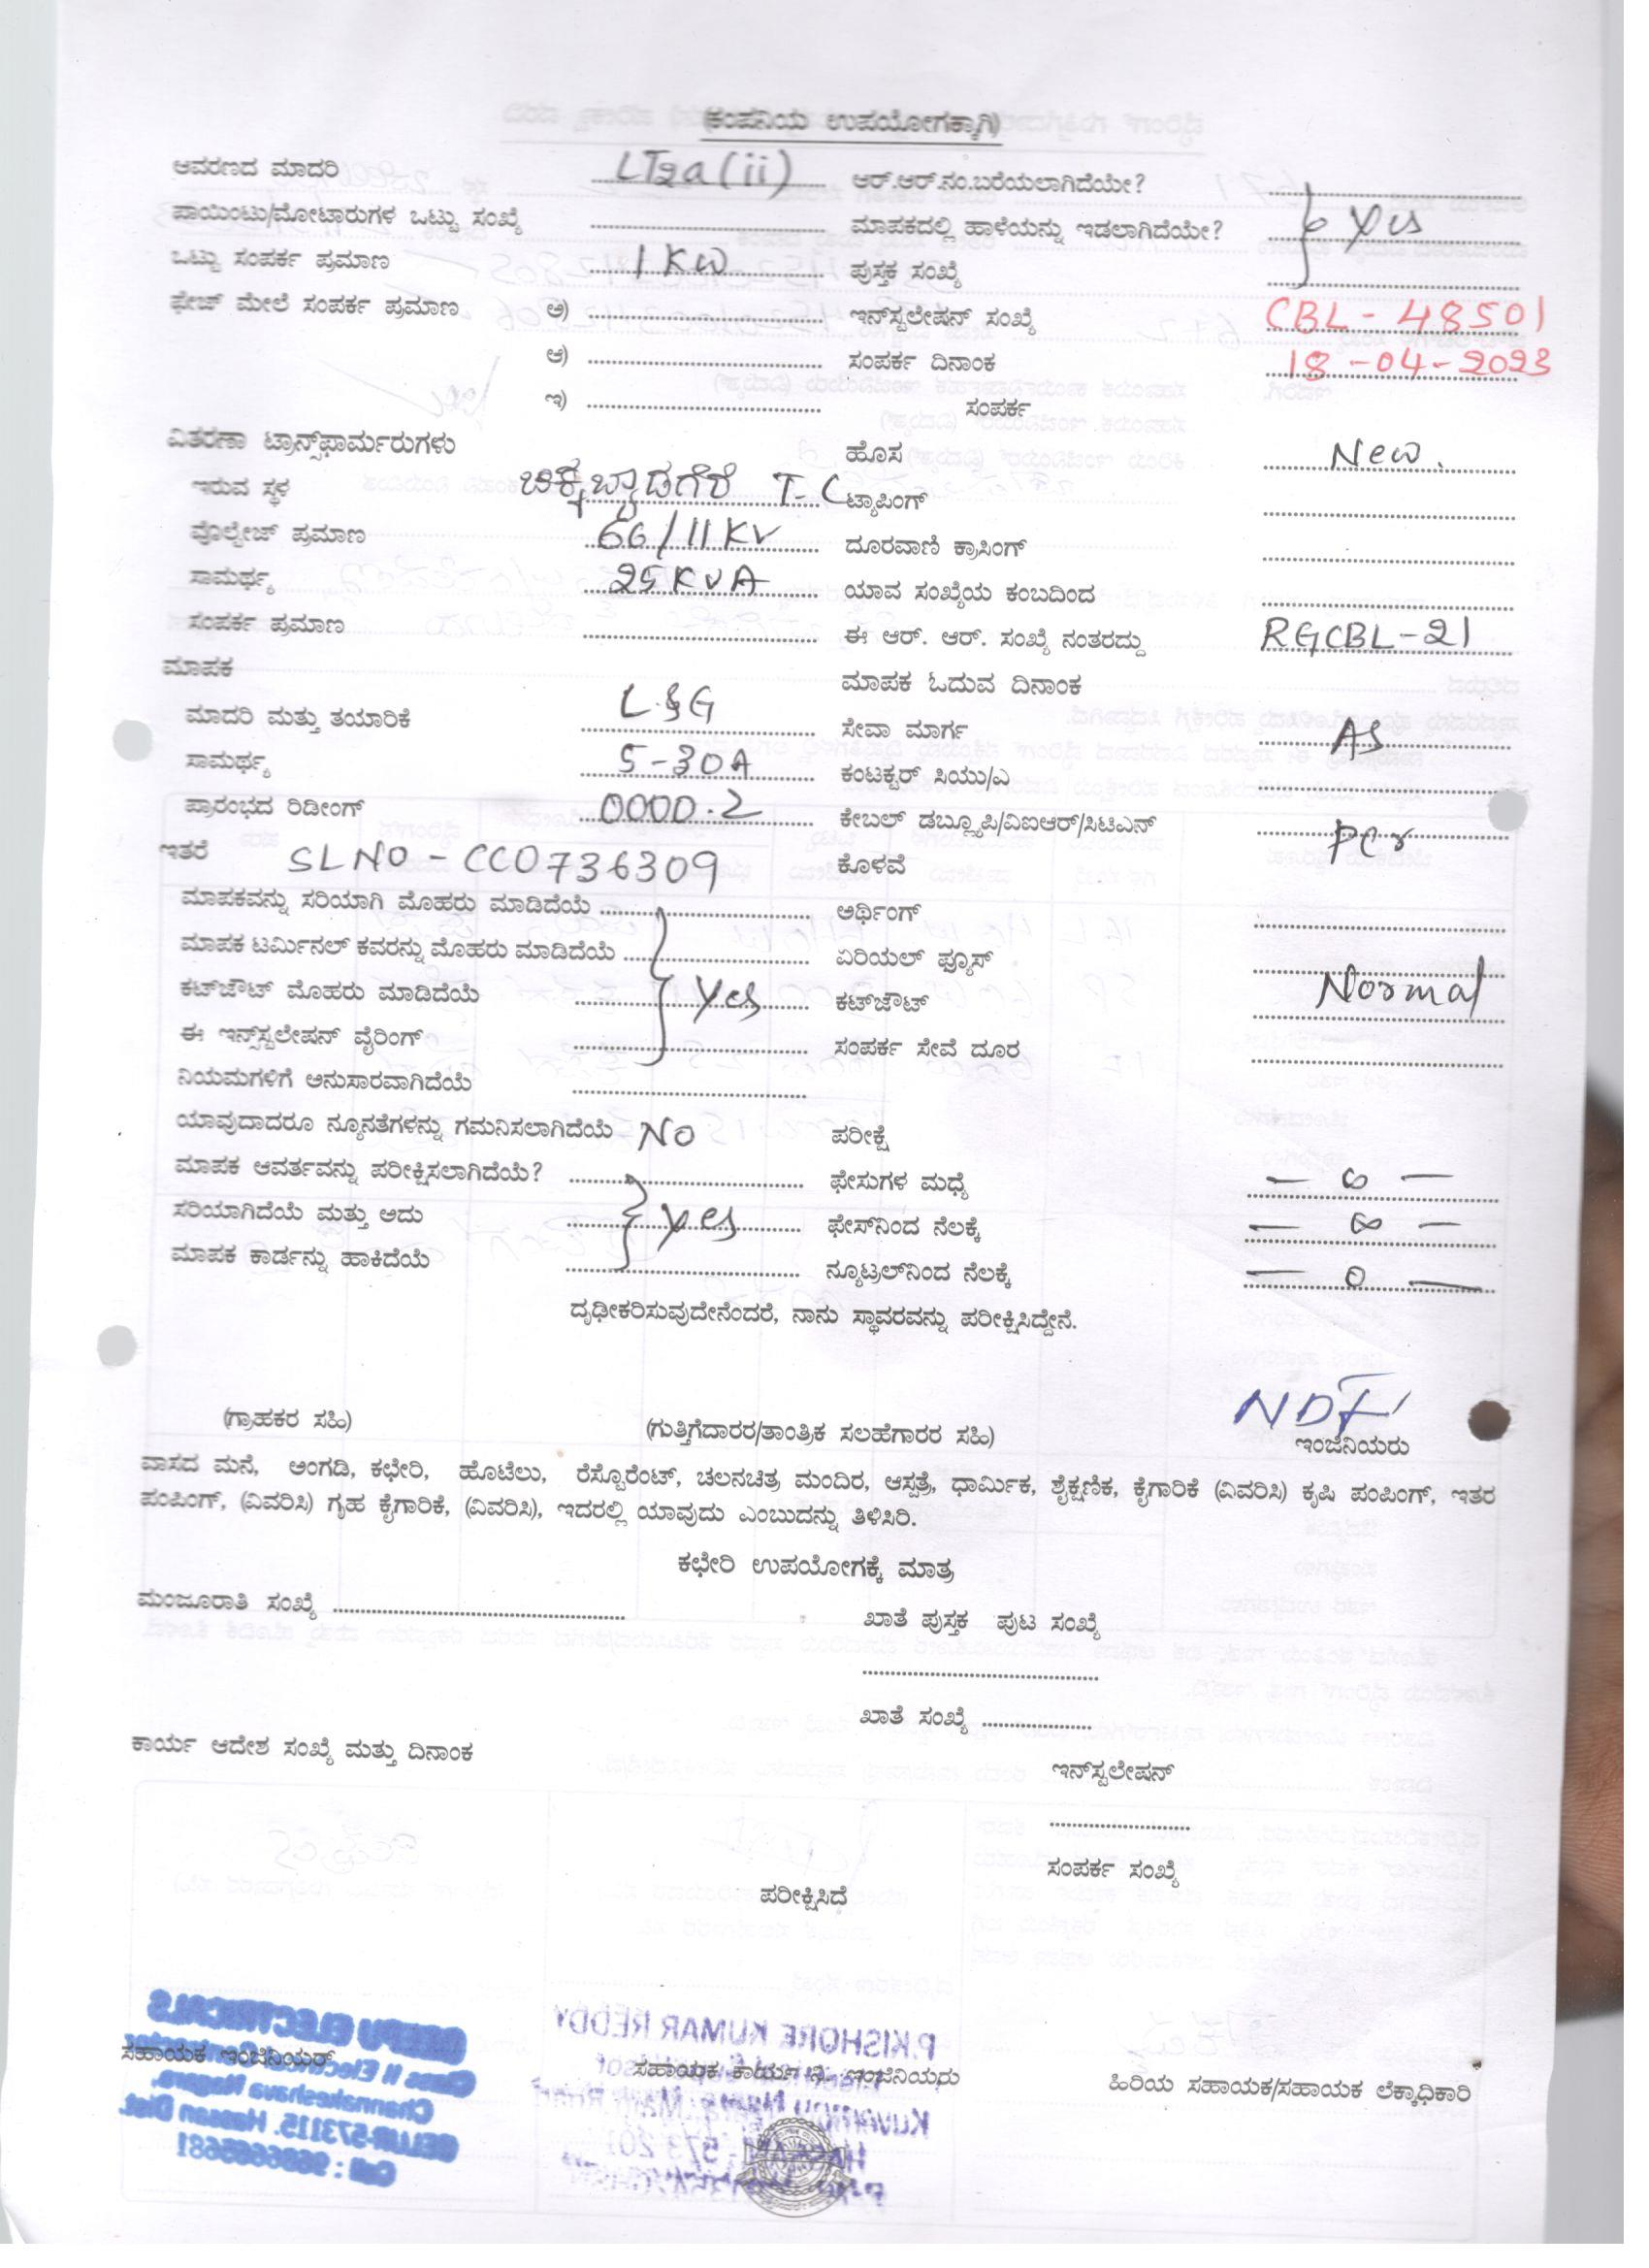 (ಕಂಪನಿಯ ಉಪಯೋಗಕ್ಕಾಗಿ)
ಆವರಣದ ಮಾದರಿ LT2a (ii) ಆರ್.ಆರ್.ನಂ.ಬರೆಯಲಾಗಿದೆಯೇ?
ಪಾಯಿಂಟು/ಮೋಟಾರುಗಳ ಒಟ್ಟು ಸಂಖ್ಯೆ ಮಾಪಕದಲ್ಲಿ ಹಾಳೆಯನ್ನು ಇಡಲಾಗಿದೆಯೇ? Yes
ಒಟ್ಟು ಸಂಪರ್ಕ ಪ್ರಮಾಣ 1 KW ಪುಸ್ತಕ ಸಂಖ್ಯೆ
ಫೇಜ್ ಮೇಲೆ ಸಂಪರ್ಕ ಪ್ರಮಾಣ ಅ) ಇನ್‌ಸ್ಟಲೇಷನ್ ಸಂಖ್ಯೆ CBL - 48501
ಆ) ಸಂಪರ್ಕ ದಿನಾಂಕ 18 -04-2023
ಇ) ಸಂಪರ್ಕ
ವಿತರಣಾ ಟ್ರಾನ್ಸ್‌ಫಾರ್ಮರುಗಳು ಹೊಸ New.
ಇರುವ ಸ್ಥಳ ಚಿಕ್ಕಬ್ಯಾಡಗೆರೆ T-C ಟ್ಯಾಪಿಂಗ್
ವೊಲ್ಟೇಜ್ ಪ್ರಮಾಣ 66/11KV ದೂರವಾಣಿ ಕ್ರಾಸಿಂಗ್
ಸಾಮರ್ಥ್ಯ 25KVA ಯಾವ ಸಂಖ್ಯೆಯ ಕಂಬದಿಂದ
ಸಂಪರ್ಕ ಪ್ರಮಾಣ ಈ ಆರ್. ಆರ್. ಸಂಖ್ಯೆ ನಂತರದ್ದು RGCBL-21
ಮಾಪಕ ಮಾಪಕ ಓದುವ ದಿನಾಂಕ
ಮಾದರಿ ಮತ್ತು ತಯಾರಿಕೆ L&G ಸೇವಾ ಮಾರ್ಗ AS
ಸಾಮರ್ಥ್ಯ 5-30A ಕಂಟಕ್ಟರ್ ಸಿಯು/ಎ
ಪ್ರಾರಂಭದ ರಿಡೀಂಗ್ 0000.2 ಕೇಬಲ್ ಡಬ್ಲ್ಯೂಪಿ/ವಿಐಆರ್/ಸಿಟಿಎಸ್
ಇತರೆ SLNO - CC0736309 ಕೊಳವೆ
ಮಾಪಕವನ್ನು ಸರಿಯಾಗಿ ಮೊಹರು ಮಾಡಿದೆಯೆ ಅರ್ಥಿಂಗ್
ಮಾಪಕ ಟರ್ಮಿನಲ್ ಕವರನ್ನು ಮೊಹರು ಮಾಡಿದೆಯೆ ಏರಿಯಲ್ ಫ್ಯೂಸ್
ಕಟ್‌ಔಟ್ ಮೊಹರು ಮಾಡಿದೆಯೆ Yes ಕಟ್‌ಔಟ್ Normal
ಈ ಇನ್ಸ್‌ಸ್ಟಲೇಷನ್ ವೈರಿಂಗ್ ಸಂಪರ್ಕ ಸೇವೆ ದೂರ
ನಿಯಮಗಳಿಗೆ ಅನುಸಾರವಾಗಿದೆಯೆ
ಯಾವುದಾದರೂ ನ್ಯೂನತೆಗಳನ್ನು ಗಮನಿಸಲಾಗಿದೆಯೆ NO ಪರೀಕ್ಷೆ
ಮಾಪಕ ಆವರ್ತವನ್ನು ಪರೀಕ್ಷಿಸಲಾಗಿದೆಯೆ? ಫೇಸುಗಳ ಮಧ್ಯೆ — ∞ —
ಸರಿಯಾಗಿದೆಯೆ ಮತ್ತು ಅದು Yes ಫೇಸ್‌ನಿಂದ ನೆಲಕ್ಕೆ — ∞ —
ಮಾಪಕ ಕಾರ್ಡನ್ನು ಹಾಕಿದೆಯೆ ನ್ಯೂಟ್ರಲ್‌ನಿಂದ ನೆಲಕ್ಕೆ — 0 —
ದೃಢೀಕರಿಸುವುದೇನೆಂದರೆ, ನಾನು ಸ್ಥಾವರವನ್ನು ಪರೀಕ್ಷಿಸಿದ್ದೇನೆ.
(ಗ್ರಾಹಕರ ಸಹಿ) (ಗುತ್ತಿಗೆದಾರರ/ತಾಂತ್ರಿಕ ಸಲಹೆಗಾರರ ಸಹಿ) ಇಂಜಿನಿಯರು
ವಾಸದ ಮನೆ, ಅಂಗಡಿ, ಕಛೇರಿ, ಹೊಟೆಲು, ರೆಸ್ಟೊರೆಂಟ್, ಚಲನಚಿತ್ರ ಮಂದಿರ, ಆಸ್ಪತ್ರೆ, ಧಾರ್ಮಿಕ, ಶೈಕ್ಷಣಿಕ, ಕೈಗಾರಿಕೆ (ವಿವರಿಸಿ) ಕೃಷಿ ಪಂಪಿಂಗ್, ಇತರ
ಪಂಪಿಂಗ್, (ವಿವರಿಸಿ) ಗೃಹ ಕೈಗಾರಿಕೆ, (ವಿವರಿಸಿ), ಇದರಲ್ಲಿ ಯಾವುದು ಎಂಬುದನ್ನು ತಿಳಿಸಿರಿ.
ಕಛೇರಿ ಉಪಯೋಗಕ್ಕೆ ಮಾತ್ರ
ಮಂಜೂರಾತಿ ಸಂಖ್ಯೆ ಖಾತೆ ಪುಸ್ತಕ ಪುಟ ಸಂಖ್ಯೆ
ಖಾತೆ ಸಂಖ್ಯೆ
ಕಾರ್ಯ ಆದೇಶ ಸಂಖ್ಯೆ ಮತ್ತು ದಿನಾಂಕ
ಇನ್‌ಸ್ಟಲೇಷನ್
ಸಂಪರ್ಕ ಸಂಖ್ಯೆ
ಪರೀಕ್ಷಿಸಿದೆ
ಸಹಾಯಕ ಇಂಜಿನಿಯರ್ ಸಹಾಯಕ ಕಾರ್ಯ ನಿ. ಇಂಜಿನಿಯರು ಹಿರಿಯ ಸಹಾಯಕ/ಸಹಾಯಕ ಲೆಕ್ಕಾಧಿಕಾರಿ